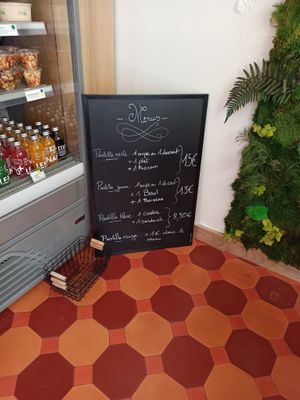 Menus
Pastille verte : 1 soupe ou 1 dessert
+ 1 plat
+ 1 Boisson
15€
Pastille jaune : 1 soupe ou 1 dessert
+ 1 Bowl
+ 1 Boisson
13€
Pastille bleue : 1 cookie
+ 1 sandwich
8,90€
Pastille rouge : + 1€ dans le
menu